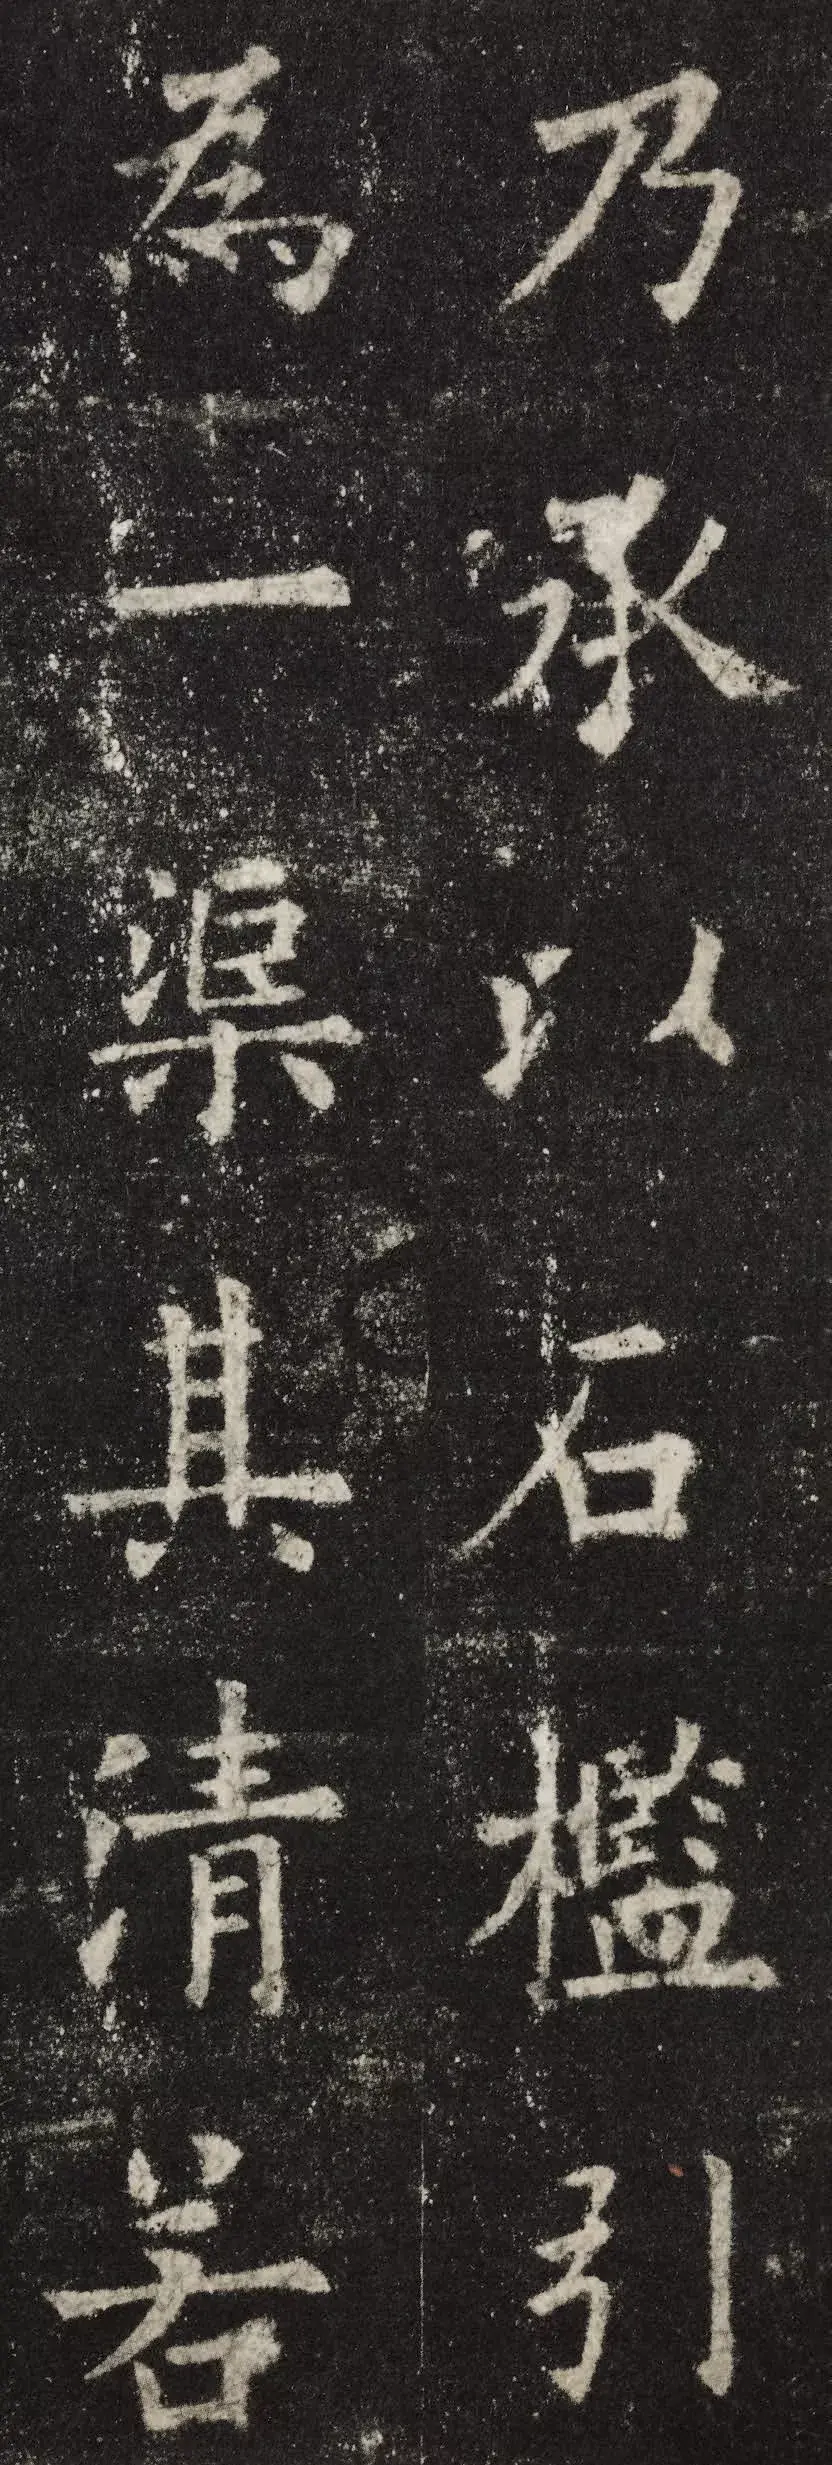 乃承以石檻引
為一渠其清若